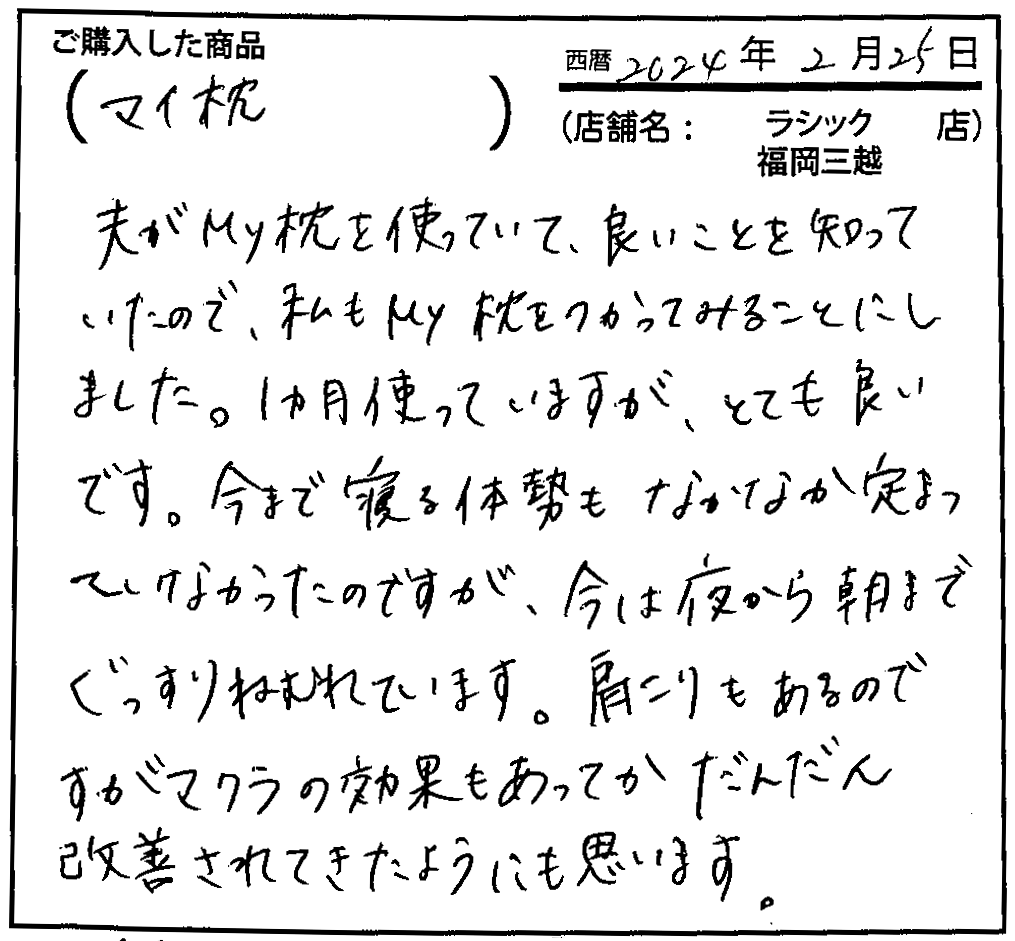 ご購入した商品
(マイ枕)
西暦 2024年 2月25日
(店舗名： ラシック 福岡三越 店)
夫がMy枕を使っていて、良いことを知って
いたので、私もMy枕をつかってみることにし
ました。1カ月使っていますが、とても良い
です。今まで寝る体勢もなかなか定まっ
ていなかったのですが、今は夜から朝まで
ぐっすりねむれています。肩こりもあるので
すがマクラの効果もあってかだんだん
改善されてきたようにも思います。